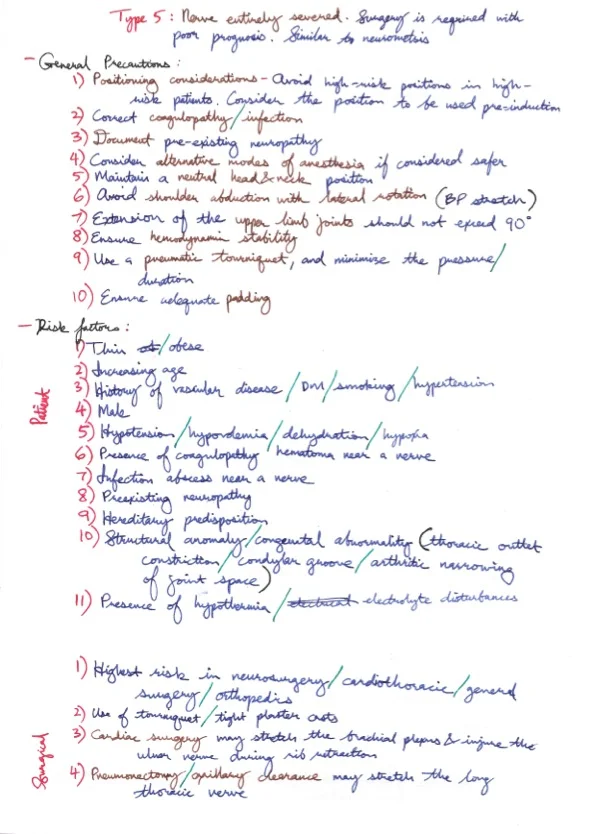 Type 5 : Nerve entirely severed. Surgery is required with
poor prognosis. Similar to neurometsis
- General Precautions :
1) Positioning considerations - Avoid high-risk positions in high-
risk patients. Consider the position to be used pre-induction
2) Correct coagulopathy/infection
3) Document pre-existing neuropathy
4) Consider alternative modes of anesthesia if considered safer
5) Maintain a neutral head & neck position
6) Avoid shoulder abduction with lateral rotation (BP stretch)
7) Extension of the upper limb joints should not exceed 90°
8) Ensure hemodynamic stability
9) Use a pneumatic tourniquet, and minimize the pressure/
duration
10) Ensure adequate padding
- Risk factors :
Patient
1) Thin /obese
2) Increasing age
3) History of vascular disease /DM/smoking/hypertension
4) Male
5) Hypotension/hypovolemia/dehydration/hypoxia
6) Presence of coagulopathy/hematoma near a nerve
7) Infection abscess near a nerve
8) Preexisting neuropathy
9) Hereditary predisposition
10) Structural anomaly/congenital abnormality (thoracic outlet
constriction/condylar groove/arthritic narrowing
of joint space)
11) Presence of hypothermia/electrical electrolyte disturbances
Surgical
1) Highest risk in neurosurgery/cardiothoracic/general
surgery/orthopedics
2) Use of tourniquet/tight plaster casts
3) Cardiac surgery may stretch the brachial plexus & injure the
ulnar nerve during rib retraction
4) Pneumonectomy/axillary clearance may stretch the long
thoracic nerve